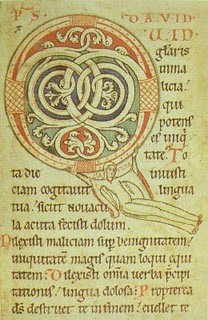 P S DAVID
UID
glaris
inma
licia:
qui
potens
es iniq
tate: To
ta die iniusti
ciam cogitauit lingua
tua: sicut nouacu
la acuta fecisti dolum.
Dilexisti maliciam sup benignitatem:
iniquitatem magis quam loqui equi
tatem: Dilexisti oma uerba pcipi
tationis: lingua dolosa: Propterea
ds destruet te infinem: euellet te